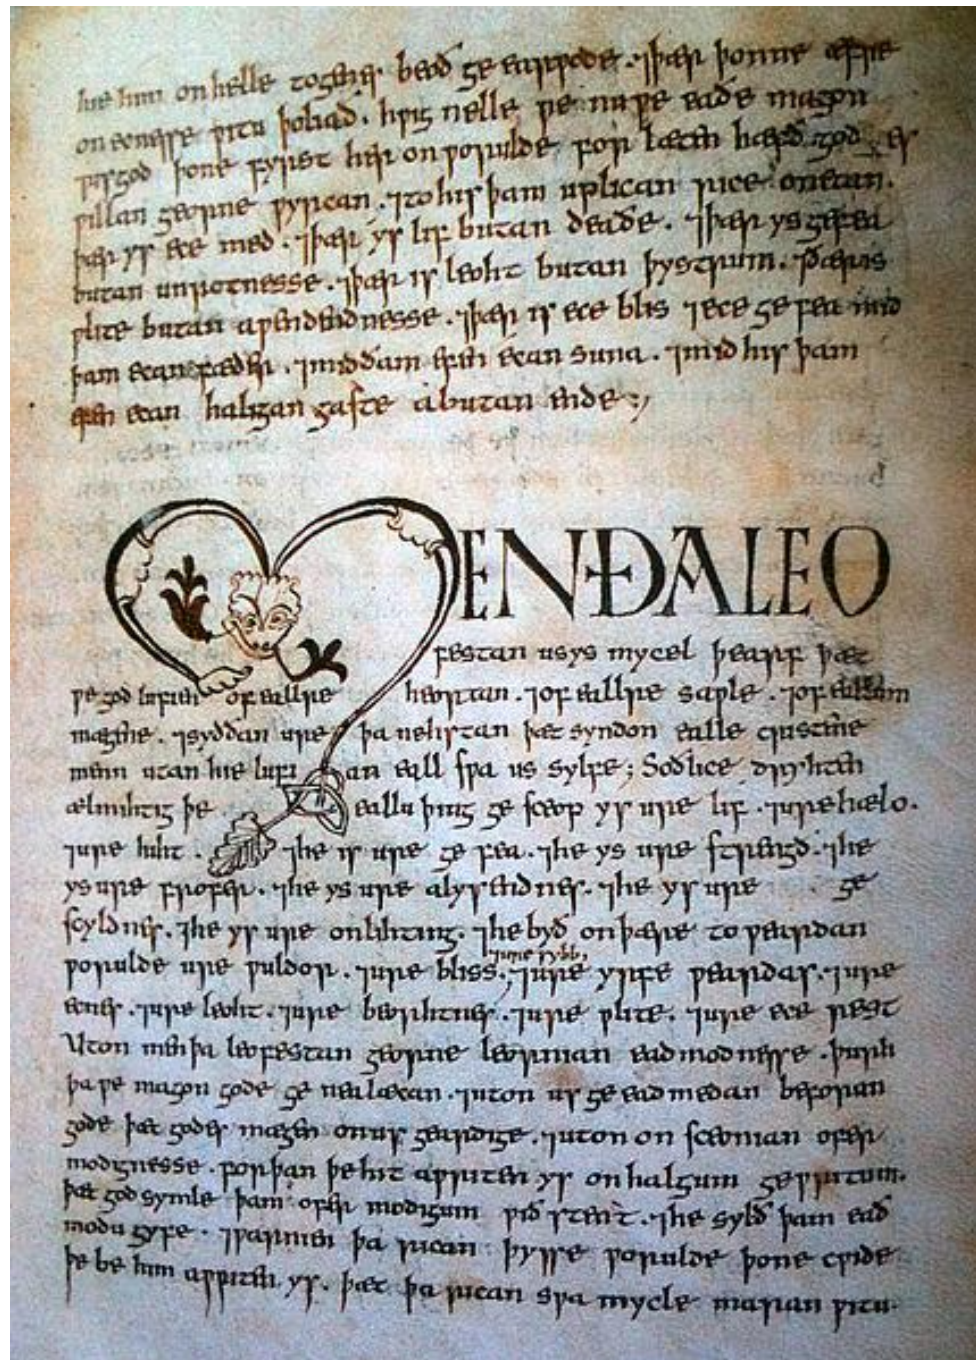 hie him on helle togenes beoð ge earwode · ⁊ þær þonne æfre
on ecnesse witu þoliað · hwig nellе we nu þe eaðe magon
þone fyrst her on worulde for læten hæfð god es
willan georne wyrcan · ⁊ to his þam uplican rice onetan ·
þær ys ece med · ⁊ þær ys lif butan deaðe · ⁊ þær ys gefea
butan unrotnesse · ⁊ þær is leoht butan þystrum · ⁊ þær is
wlite butan awendendnesse · ⁊ þær is ece blis ⁊ ece ge fea mid
þam ecan fæder · ⁊ mid ðam efen ecan suna · ⁊ mid his þam
efen ecan halgan gaste á butan ende :,
MENÐA LEO
festan us ys mycel þearf þæt
ƿe god lufien of eallre heortan · ⁊ of eallre saƿle · ⁊ of eallum
mægene · ⁊ syððan ure þa nehstan þæt syndon ealle cristene
menn utan hie lufian eall sƿa us sylfe ; Soðlice dryhten
ælmihtig þe eallu þing ge sceop ys ure lif · ⁊ ure hælo ·
⁊ ure hiht · ⁊ he is ure ge fea · ⁊ he ys ure strengð · ⁊ he
ys ure frofer · ⁊ he ys ure alysendnes · ⁊ he ys ure ge
scyldnes · ⁊ he ys ure onlihting · ⁊ he byð on þære to ƿeardan
⁊ ure sybb,
ƿorulde ure ƿuldor · ⁊ ure bliss · ⁊ ure yrfe ƿeardas · ⁊ ure
ecnes · ⁊ ure leoht · ⁊ ure beorhtnes · ⁊ ure ƿlite · ⁊ ure ece rest
Uton men þa leofestan georne leornian eadmodnesse · þurh
þa ƿe magon gode ge nealæcan · ⁊ uton us ge eadmedan beforan
gode þæt godes mægen on us geardige · ⁊ uton on sceonian ofer
modignesse · forþan þe hit aƿriten ys on halgum geƿritum ·
þæt god symle þam ofer modigum ƿið stent · ⁊ he sylð þam ead
modu gyfe · ⁊ ƿarnien þa rican þysse ƿorulde þone cƿide
þe be him aƿriten ys · þæt þa rican sƿa mycle maran ƿitu ·